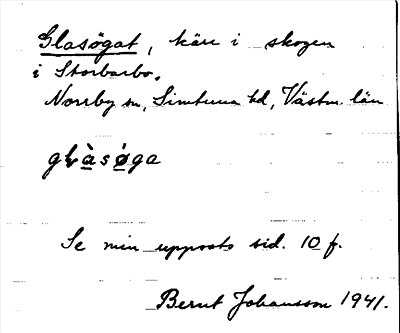 Glasögat, kärr i skogen
i Storbarbo.
Norrby sn, Simtuna hd, Västm. län
glàsøga
Se min uppsats sid. 10 f.
Bernt Johansson 1941.